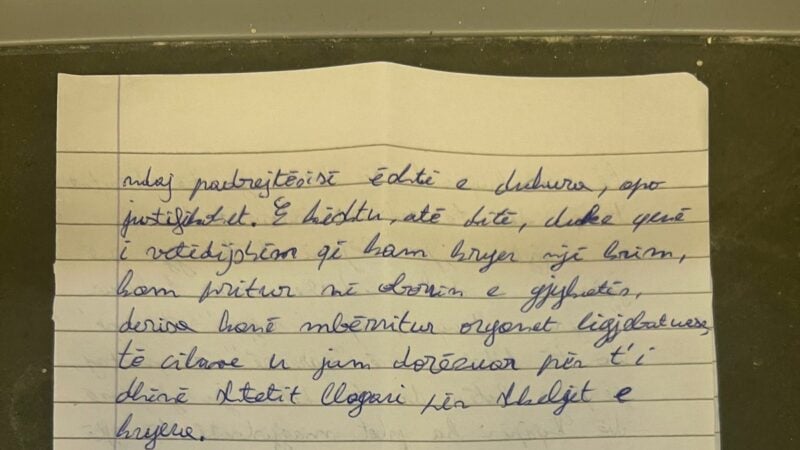 ndaj padrejtësisë është e duhura, apo
justifikohet. E kështu, atë ditë, duke qenë
i vetëdijshëm që kam kryer një krim,
kam pritur në oborrin e gjykatës,
derisa kanë mbërritur organet ligjzbatuese,
të cilave u jam dorëzuar për t'i
dhënë shtetit llogari për shkeljet e
kryera.